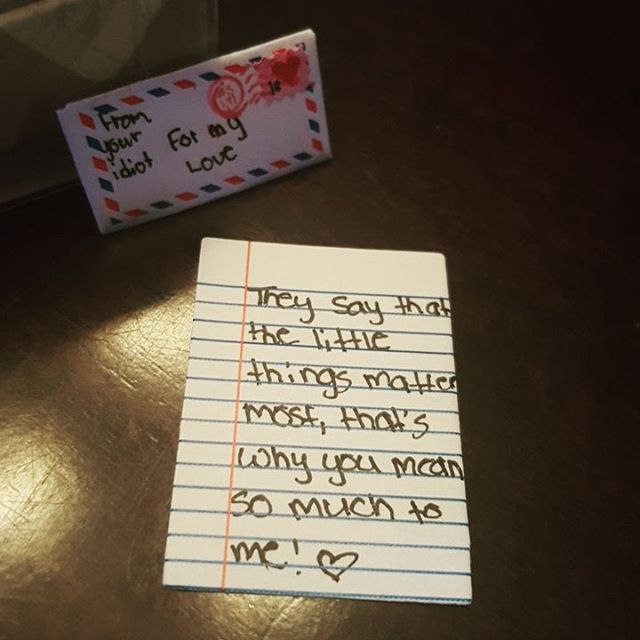 From
your
idiot
For my
Love
They say that
the little
things matter
most, that's
why you mean
so much to
me! ♡